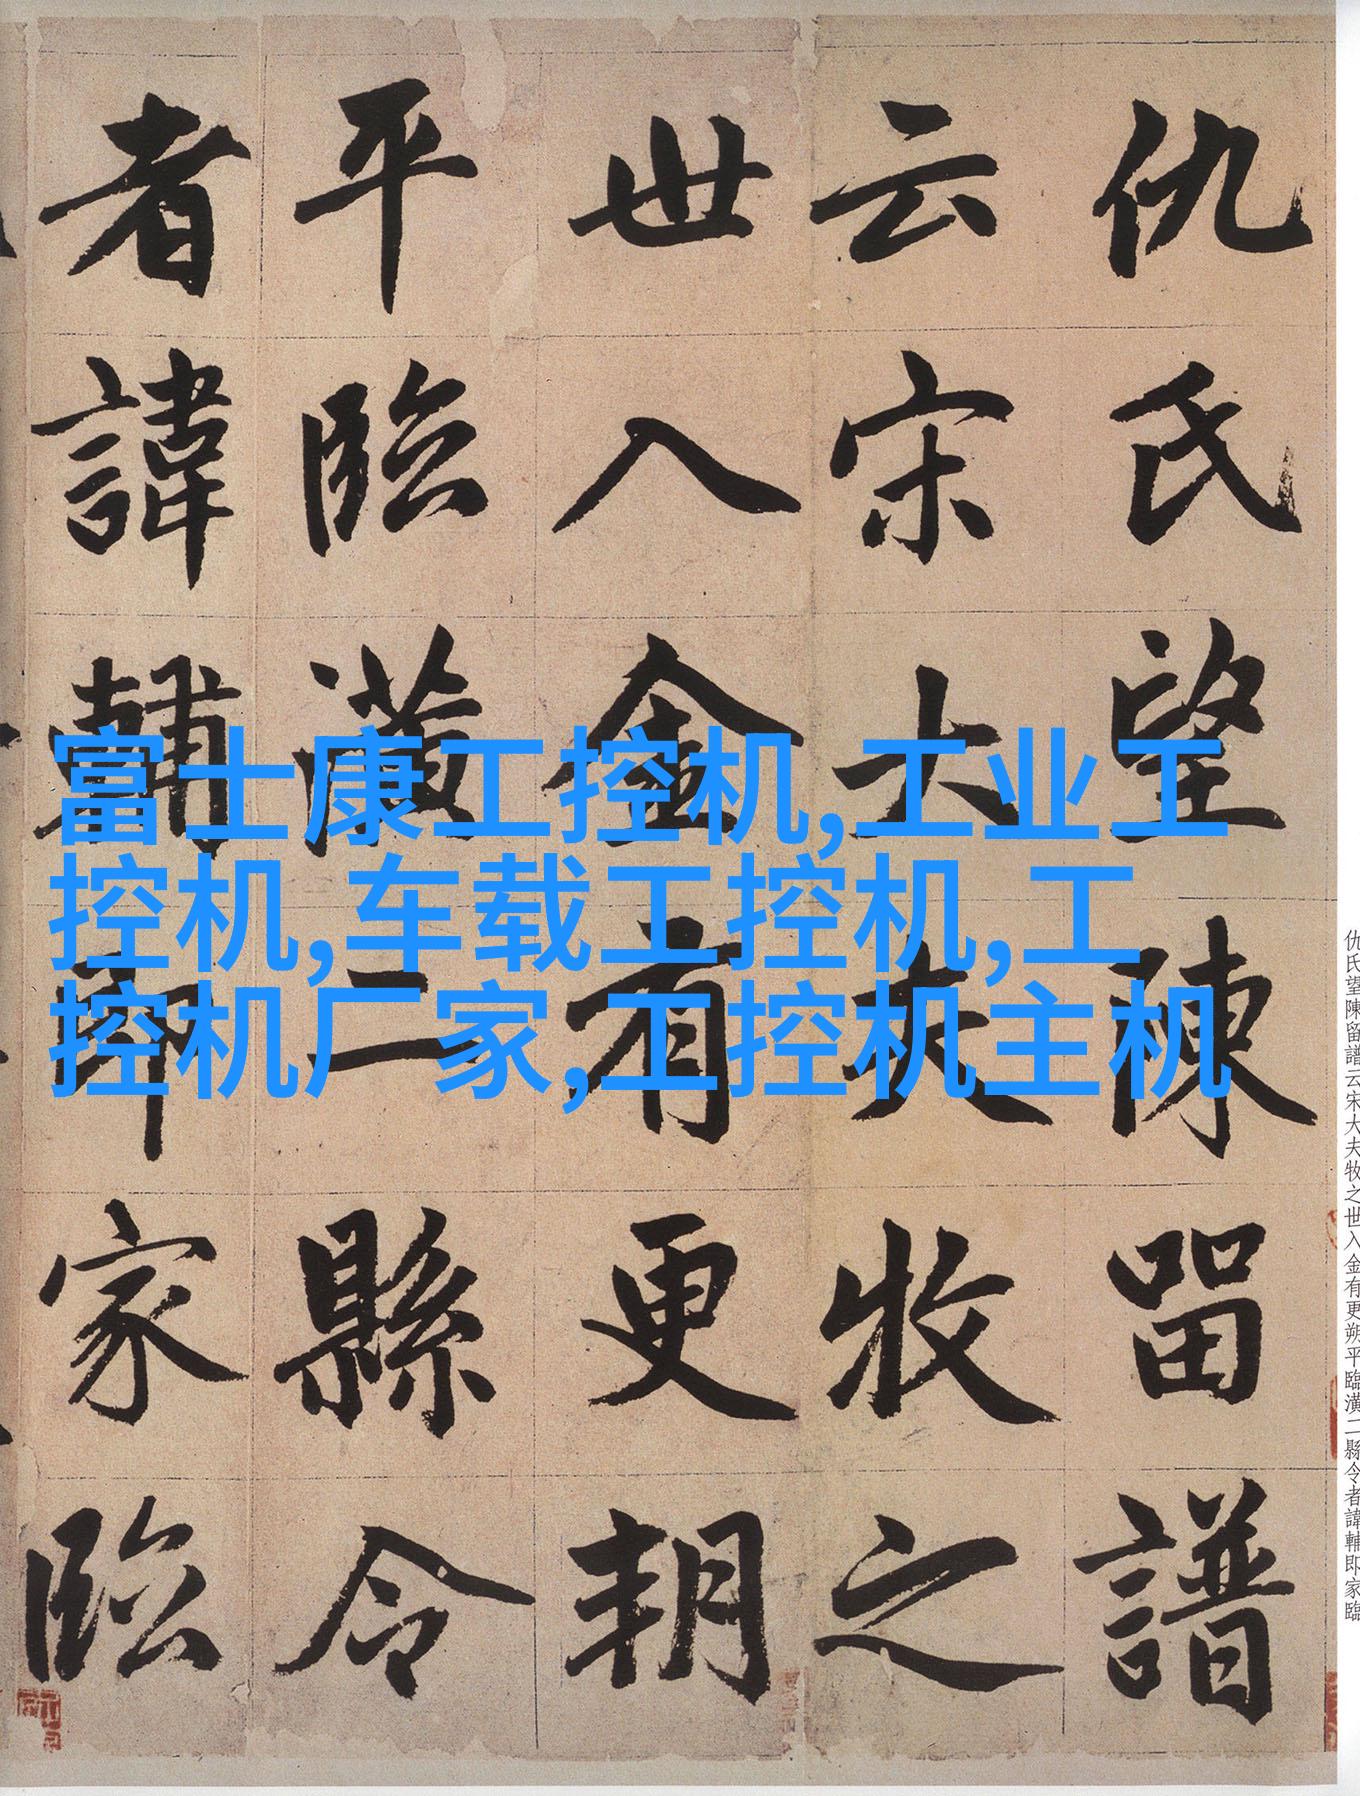 仇氏望陳留譜
云宋大夫牧之
世入金有更朔
平臨潢二縣令
者諱輔即家臨
富士康工控机,工业工
控机,车载工控机,工
控机厂家,工控机主机
仇氏望陳留譜云宋大夫牧之世入金有更朔平臨潢二縣令者諱輔即家臨